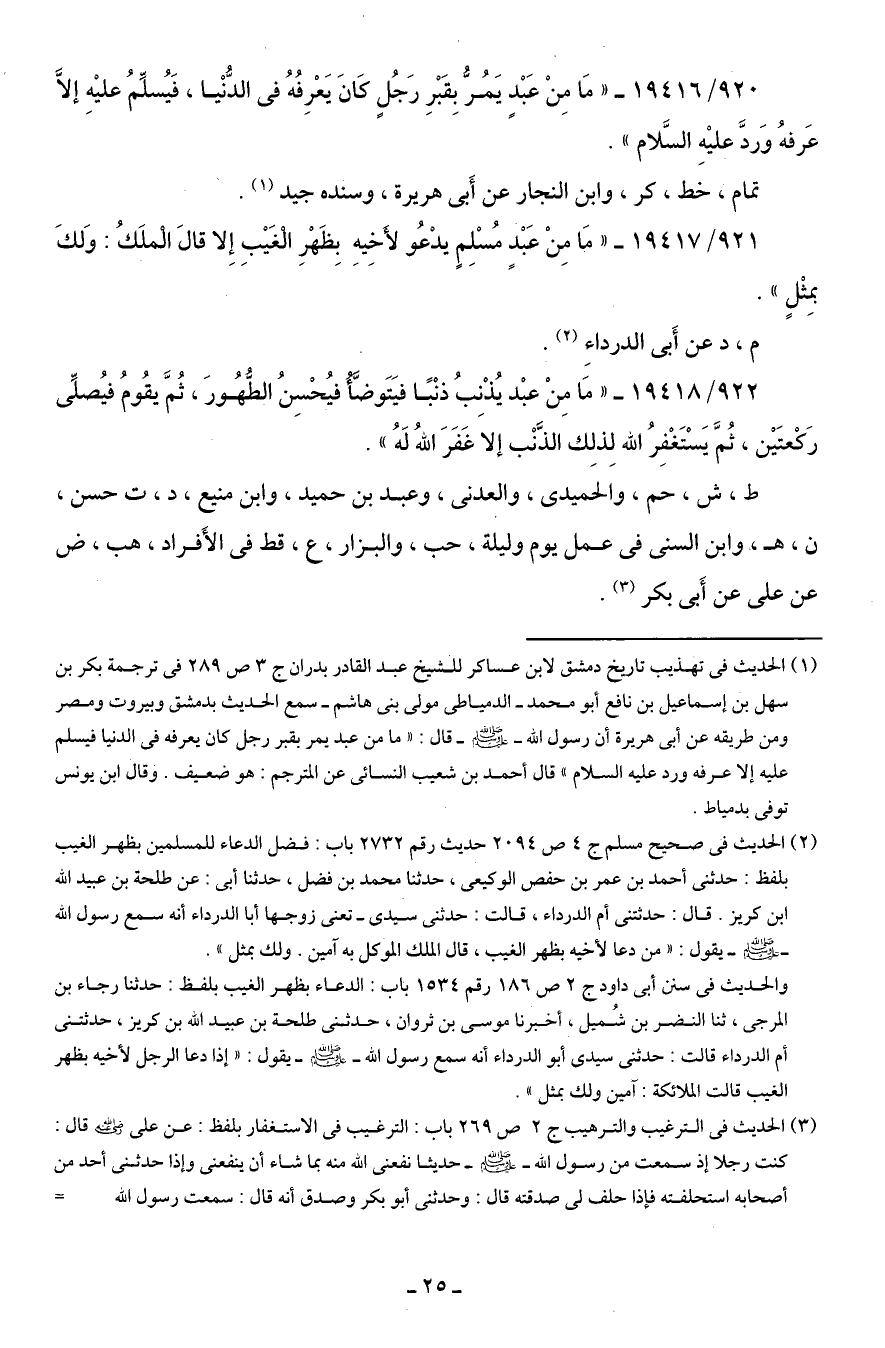 ١٩٤١٦/٩٢٠ ـ « مَا مِنْ عَبْدٍ يَمُـرُّ بِقَبْرِ رَجُلٍ كَانَ يَعْرِفُهُ فى الدُّنْيـا ، فَيُسلِّمُ عليْهِ إلاَّ
عَرفهُ وَردَّ عليْهِ السَّلام » .
تمام ، خط ، كر ، وابن النجار عن أَبى هريرة ، وسنده جيد (١) .
١٩٤١٧/٩٢١ ـ « مَا مِنْ عَبْدٍ مُسْلِمٍ يدْعُو لأَخِيهِ بِظَهْرِ الْغَيْبِ إِلا قالَ الْملَكُ : وَلكَ
بِمثْلٍ » .
م ، د عن أَبى الدرداءِ (٢) .
١٩٤١٨/٩٢٢ ـ « مَا مِنْ عَبْد يُذْنِبُ ذنْبًـا فيَتَوضَّأُ فيُحْسِنُ الطُّهُـورَ ، ثُمَّ يقُومُ فيُصلِّى
رَكْعتَيْنِ ، ثُمَّ يَسْتَغْفِرُ الله لذلِك الذَّنْبِ إلا غَفَرَ اللهُ لَهُ » .
ط ، ش ، حم ، والحميدى ، والعدنى ، وعبـد بن حميد ، وابن منيع ، د ، ت حسن ،
ن ، هـ ، وابن السنى فى عـمل يوم وليلة ، حب ، والبـزار ، ع ، قط فى الأَفـراد ، هب ، ض
عن على عن أَبى بكر (٣) .
(١) الحديث فى تهـذيب تاريخ دمشق لابن عـساكر للـشيخ عبـد القادر بدران ج ٣ ص ٢٨٩ فى ترجمة بكر بن
سهل بن إسـماعيل بن نافع أبو محـمد ـ الدمياطى مولى بنى هاشم ـ سمع الحـديث بدمشق وبيروت ومـصر
ومن طريقه عن أبى هريرة أن رسول الله ـ ﷺ ـ قال : « ما من عبد يمر بقبر رجل كان يعرفه فى الدنيا فيسلم
عليه إلا عـرفه ورد عليه السـلام » قال أحمـد بن شعيب النسـائى عن المترجم : هو ضعيف . وقال ابن يونس
توفى بدمياط .
(٢) الحديث فى صـحيح مسلم ج ٤ ص ٢٠٩٤ حديث رقم ٢٧٣٢ باب : فـضل الدعاء للمسلمين بظهـر الغيب
بلفظ : حدثنى أحمد بن عمر بن حفص الوكيعى ، حدثنا محمد بن فضل ، حدثنا أبى : عن طلحة بن عبيد الله
ابن كريز . قـال : حدثتنى أم الدرداء ، قـالت : حدثنى سيـدى ـ تعنى زوجـها أبا الدرداء أنه سـمع رسول الله
ـ ﷺ ـ يقول : « من دعا لأخيه بظهر الغيب ، قال الملك الموكل به آمين . ولك بمثل » .
والحـديث فى سنن أبى داود ج ٢ ص ١٨٦ رقم ١٥٣٤ باب : الدعـاء بظهـر الغيب بلفـظ : حدثنا رجـاء بن
المرجى ، ثنا النـضر بن شُميل ، أخـبرنا موسى بن ثروان ، حـدثـنى طلحة بن عبيد الله بن كريز ، حدثتـنى
أم الدرداء قالت : حدثنى سيدى أبو الدرداء أنه سمع رسول الله ـ ﷺ ـ يقول : « إذا دعا الرجل لأخيه بظهر
الغيب قالت الملائكة : آمين ولك بمثل » .
(٣) الحديث فى التـرغيب والتـرهيب ج ٢ ص ٢٦٩ باب : الترغـيب فى الاستـغفار بلفظ : عـن على رضي الله عنه قال :
كنت رجلا إذ سـمعت من رسـول الله ـ ﷺ ـ حديثـا نفعنى الله منه بما شـاء أن ينفعنى وإذا حدثـنى أحد من
أصحابه استحلفـته فإذا حلف لى صدقته قال : وحدثنى أبو بكر وصـدق أنه قال : سمعت رسول الله =
ـ ٢٥ ـ